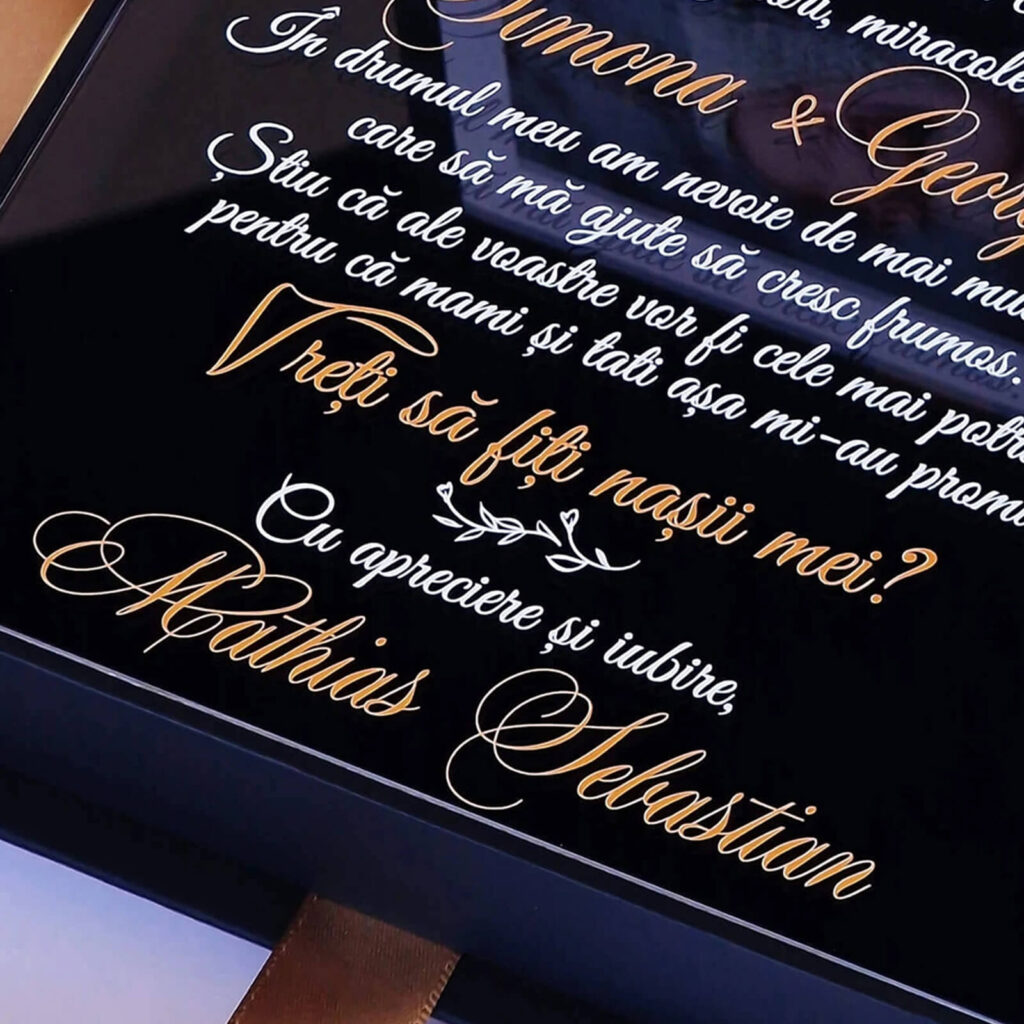 miracole
Simona &
În drumul meu am nevoie de mai
care să mă ajute să cresc frumos.
Știu că ale voastre vor fi cele mai
pentru că mami și tati așa mi-au
Vreți să fiți nașii mei?
Cu apreciere și iubire,
Mathias Sebastian